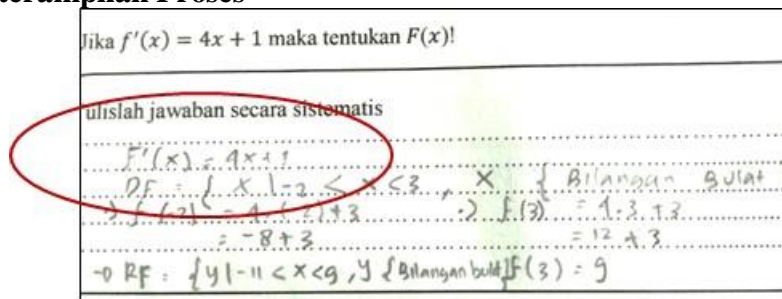 terampilan Proses
Jika f'(x) = 4x + 1 maka tentukan F(x)!
ulislah jawaban secara sistematis
F'(x) = 4x+1
DF = { x | -2 ≤ x < 3, x { Bilangan Bulat
·) f(-2) = 4.(-2)+3 ·) f(3) = 4.3 +3
= -8+3 = 12 +3
→ RF = {y | -11 < x < 9, y { Bilangan bulat} f(3) = 9